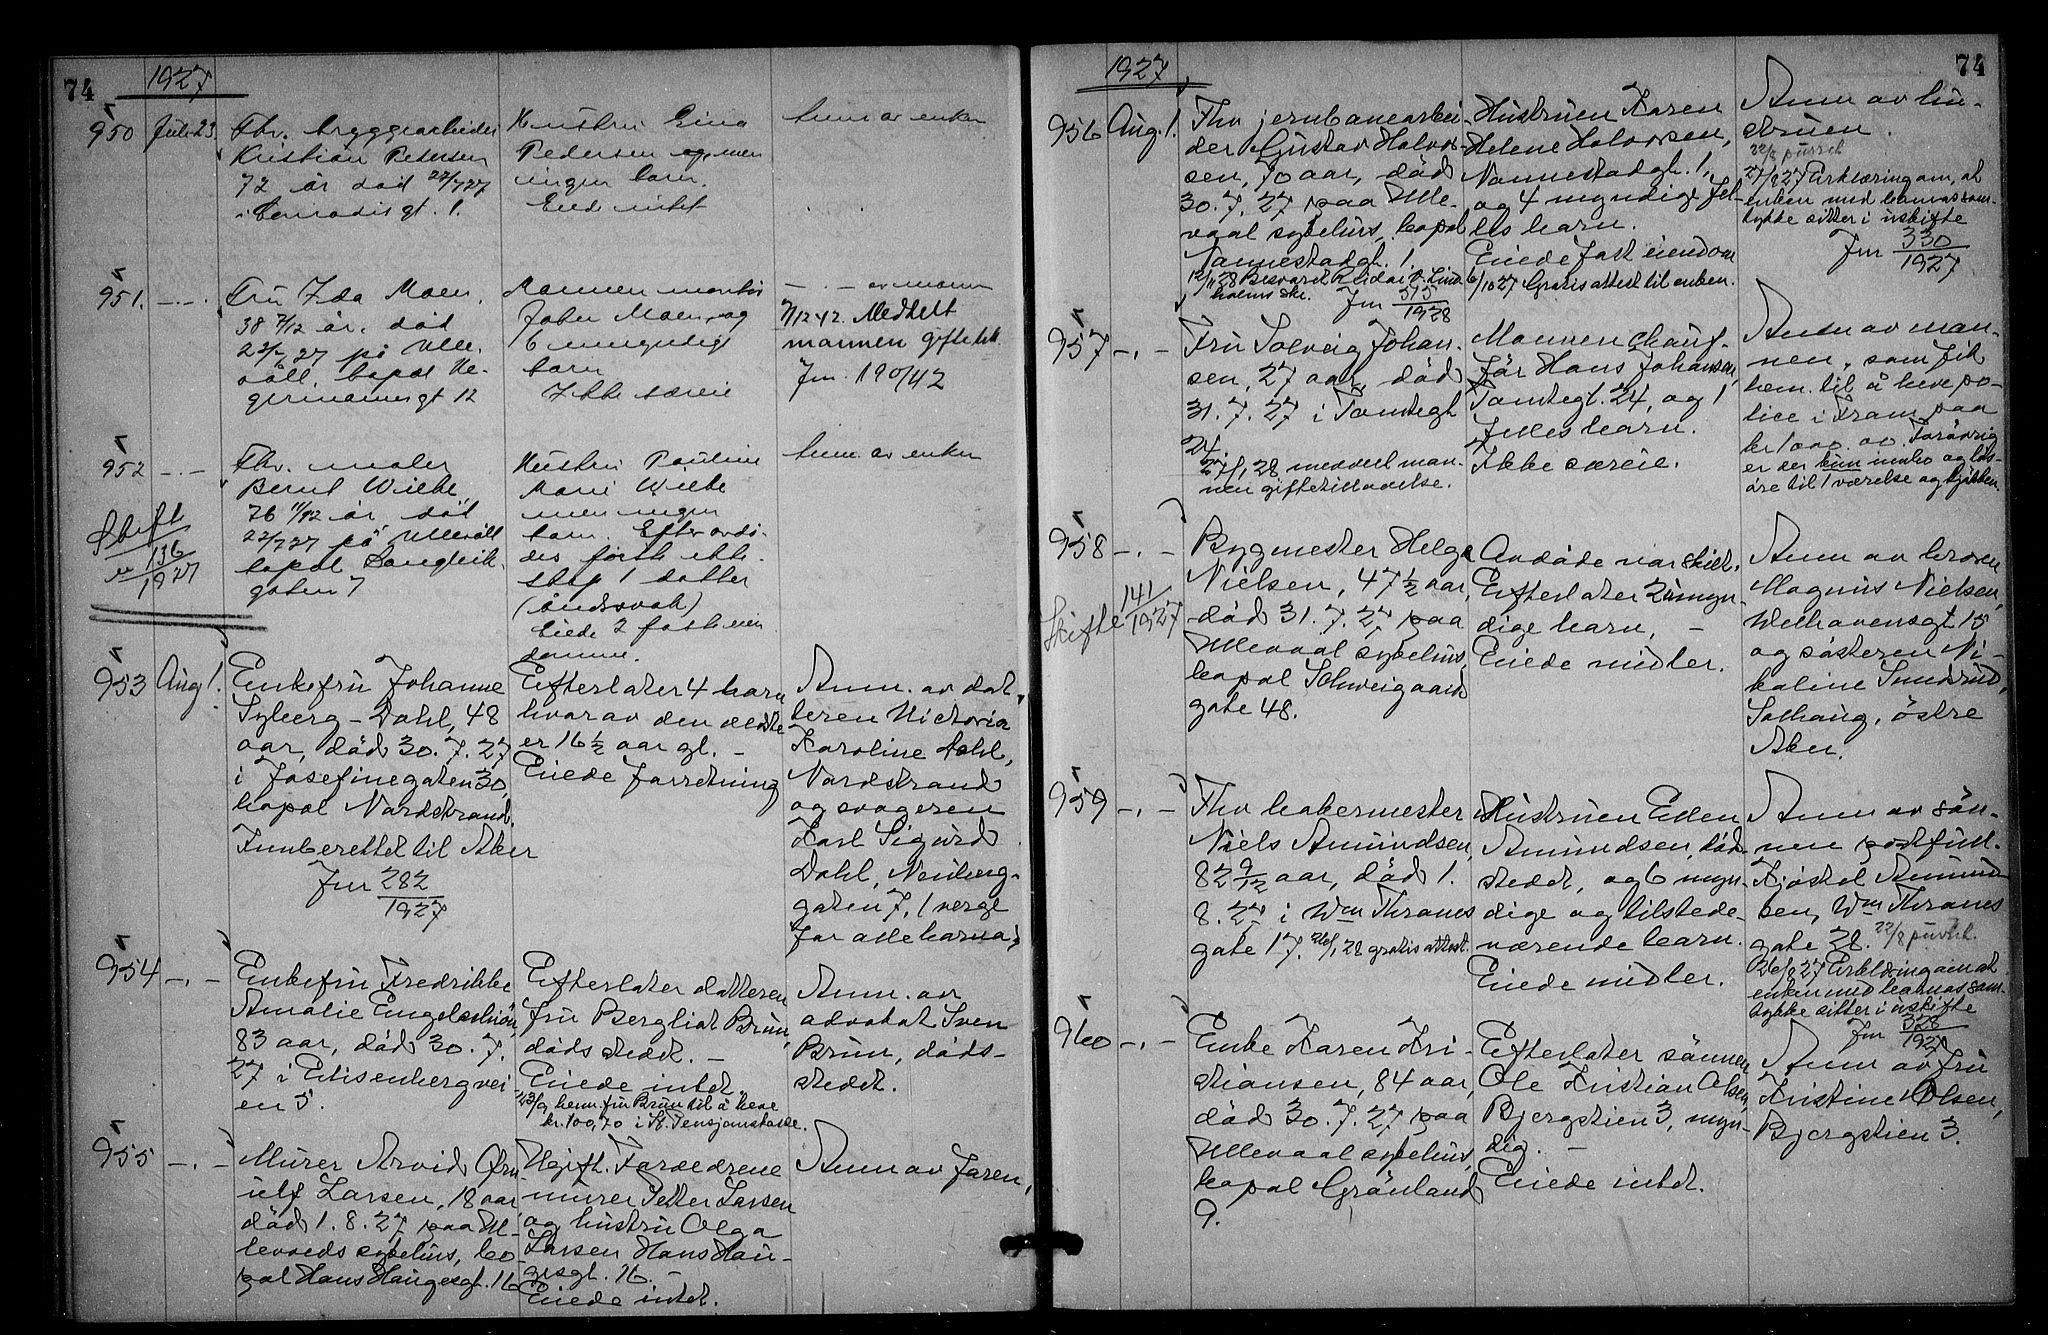 74
1927
950 Juli 23.
Fhv. bryggearbeider
Kristian Pedersen
72 år død 22/7 27
gt. 1.
Hustru Gina
Pedersen og men
ingen barn.
Eied intet
hun av enken
951. -.-.
Fru Ida Moen,
38 7/12 år, død
23/7 27 på Ulle-
våll, bopæl He-
germannsgt 12
Mannen montør
Johan Moen, og
6 umyndige
barn
Ikke særeie
-.- av mannen
7/12 42. Meddelt
mannen giftetill.
Jnr. 190/42
952 -.-
Skift
136
1927
Fhv. maler
Bernt Wiebe
76 11/12 år, død
22/7 27 på Ullevåll
bopæl Langleik-
gaten 7
Hustru Pauline
Marie Wiebe
men ingen
barn. Efter avdø-
des første ekte-
skap 1 datter
(åndssvak)
Eiede 2 faste eien
domme.
hun av enken
953 Aug 1.
Enkefru Johanne
Syberg-Dahl, 48
aar, død 30.7.27
i Josefinegaten 30,
bopæl Nordstrand.
Innberettet til Aker
Jnr 282
1927
Efterlater 4 barn
hvorav den ældste
er 16 1/2 aar gl. -
Eiede forretning
Anm. av dat-
teren Victoria
Karoline Dahl,
Nordstrand
og svogeren
Karl Sigurd
Dahl, Neuberg-
gaten 7, 1 verge
for alle barna.
954 -.-
Enkefru Fredrikke
Amalie Engelschiøn,
83 aar, død 30.7.
27 i Eilisenbergvei-
en 5.
Efterlater datteren
fru Bergliot Brun,
dødsstedet. -
Eiede intet
23/9 bem. fru Brun til å heve
kr. 100,70 i St. Pensjonskasse.
Anm. av
advokat Sven
Brun, døds-
stedet.
955 -.-
Murer Arvid Ørn
ulf Larsen, 18 aar
død 1.8.27 paa Ul-
levaals sykehus, bo-
pæl Hans Haugesgt. 16
Ugift. Forældrene
murer Petter Larsen
og hustru Olga
Larsen Hans Hau-
gesgt. 16. -
Eiede intet.
Anm av faren,
74
1927
956 Aug. 1.
Fhv jernbanearbei-
der Gustav Halvor-
sen, 70 aar, død
30.7.27 paa Ulle-
vaal sykehus, bopæl
Nannestadgt. 1.
Jnr 515
1928
Hustruen Karen
Helene Halvorsen,
Nannestadgt. 1,
og 4 myndige fel-
les barn.
Eiede fast eiendom
6/10 27 Gratis attest til enken.
Anm av hu-
struen.
22/8 purret
27/8 27 Erklæring om, at
enken med barnas sam-
tykke sitter i uskifte
Jnr 330
1927
957 -.-
Fru Solveig Johan-
sen, 27 aar, død
31.7.27 i Tomtegt
24.
28 meddelt man-
nen giftetilladelse.
Mannen chauf-
før Hans Johansen,
Tomtegt. 24, og 1
felles barn.
Ikke særeie.
Anm av man-
nen, som fik
bem. til å heve po-
lice i Fram paa
kr 1000,00. Forøvrig
er der kun innbo og løs-
øre til 1 værelse og kjøkken.
958 -.-
Skifte 141
1927
Bygmester Helge
Nielsen, 47 1/2 aar,
død 31.7.27 paa
Ullevaal sykehus,
bopæl Schweigaards
gate 48.
Avdøde var skilt.
Efterlater 2 umyn-
dige barn, -
Eiede midler.
Anm av broren
Magnus Nielsen,
Welhavensgt 15
og søsteren Ni-
koline Sundrud,
Solhaug, østre
Aker.
959 -.-
Fhv bakermester
Niels Amundsen,
82 9/12 aar, død 1.
8.27 i Wm Thranes
gate 17. 26/1 28 gratis attest.
Hustruen Ellen
Amundsen, død-
stedet, og 6 myn-
dige og tilstede-
værende barn.
Eiede midler.
Anm av søn-
nen postfull.
Kjøstel Amund
sen, Wm Thranes
gate 28. 22/8 purret.
26/8 27 Erklæring om at
enken med barnas sam-
tykke sitter i uskifte
Jnr 328
1927
960 -.-
Enke Karen Kri-
stiansen, 84 aar,
død 30.7.27 paa
Ullevaal sykehus,
bopæl Grønland
9.
Efterlater sønnen
Ole Kristian Olsen,
Bjergstien 3, myn-
dig. -
Eiede intet.
Anm av fru
Kristine Olsen,
Bjergstien 3.